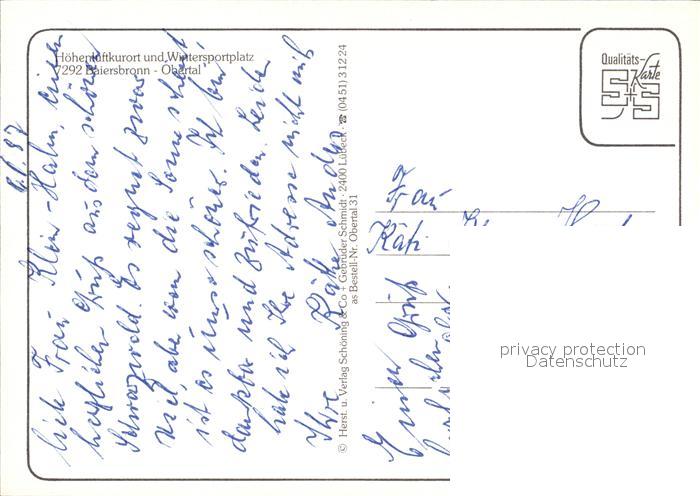 Höhenluftkurort und Wintersportplatz
7292 Baiersbronn - Obertal
Qualitäts-
Karte
S+S
liebe Frau Klein-Hahn, einen
herzlichen Gruß aus dem schönen
Schwarzwald. Es regnet zwar
viel, aber wenn die Sonne scheint
ist es umso schöner. Ich bin
dankbar und zufrieden. Leider
habe ich Ihre Adresse nicht mit
Ihre Käthe
© Herst. u. Verlag Schöning & Co + Gebrüder Schmidt · 2400 Lübeck · ☎ (04 51) 3 12 24
as Bestell-Nr. Obertal 31
Frau
Käti
Einen Gruß
privacy protection
Datenschutz